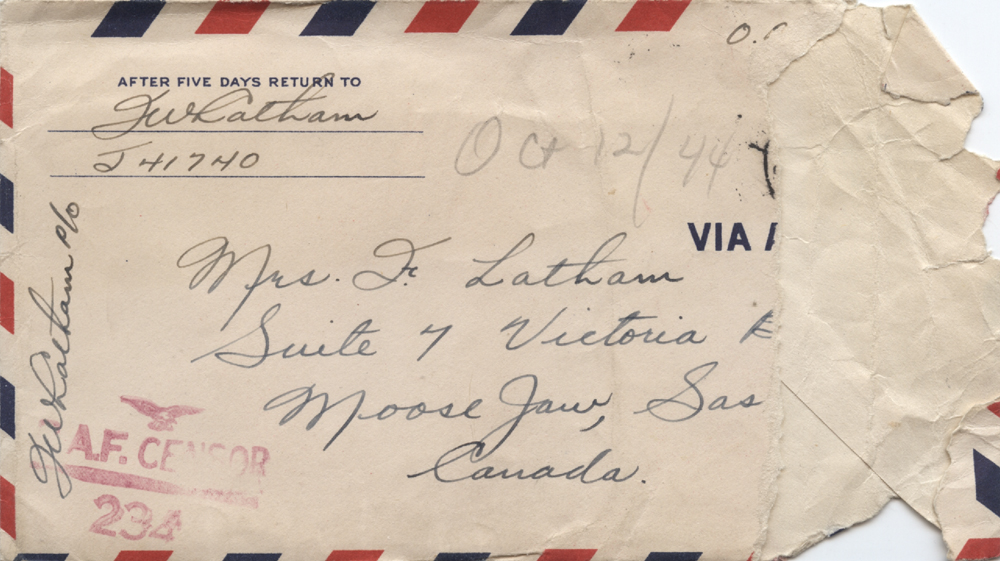 O.
AFTER FIVE DAYS RETURN TO
FW Latham
J 41740
Oct 12/44
VIA A
Mrs. F. Latham
Suite 7 Victoria
Moose Jaw, Sas
Canada.
FW Latham P/O
A.F. CENSOR
234